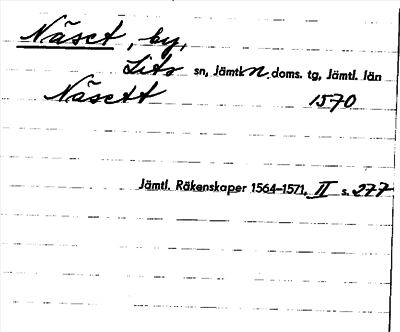 Näset, by,
Lits sn, Jämtl. n. doms. tg, Jämtl. län
Näsett 1570
Jämtl. Räkenskaper 1564–1571, II s. 277